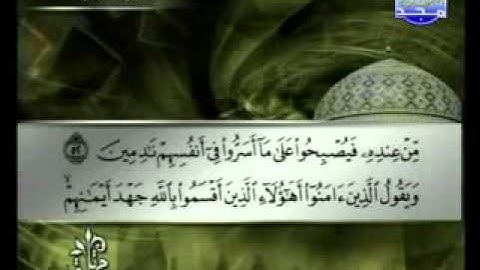 المجد
مِّنْ عِندِهِۦ فَيُصْبِحُوا۟ عَلَىٰ مَآ أَسَرُّوا۟ فِىٓ أَنفُسِهِمْ نَٰدِمِينَ ٥٢
وَيَقُولُ ٱلَّذِينَ ءَامَنُوٓا۟ أَهَٰٓؤُلَآءِ ٱلَّذِينَ أَقْسَمُوا۟ بِٱللَّهِ جَهْدَ أَيْمَٰنِهِمْ ۙ